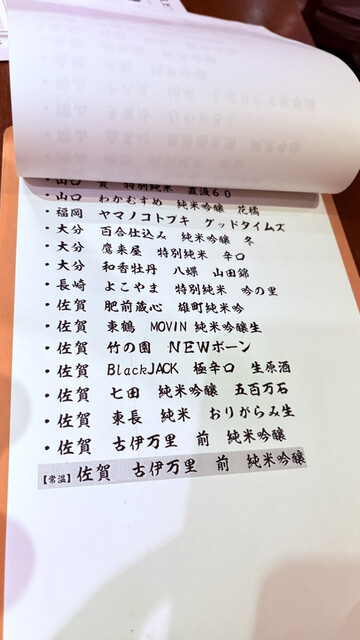 ・山口　貴　特別純米　直汲60
・山口　わかむすめ　純米吟醸　花橘
・福岡　ヤマノコトブキ　グッドタイムズ
・大分　百合仕込み　純米吟醸　冬
・大分　鷹来屋　特別純米　辛口
・大分　和香牡丹　八蝶　山田錦
・長崎　よこやま　特別純米　吟の里
・佐賀　肥前蔵心　雄町純米吟
・佐賀　東鶴　MOVIN 純米吟醸生
・佐賀　竹の園　NEWボーン
・佐賀　BlackJACK　極辛口　生原酒
・佐賀　七田　純米吟醸　五百万石
・佐賀　東長　純米　おりがらみ生
・佐賀　古伊万里　前　純米吟醸
【常温】佐賀　古伊万里　前　純米吟醸